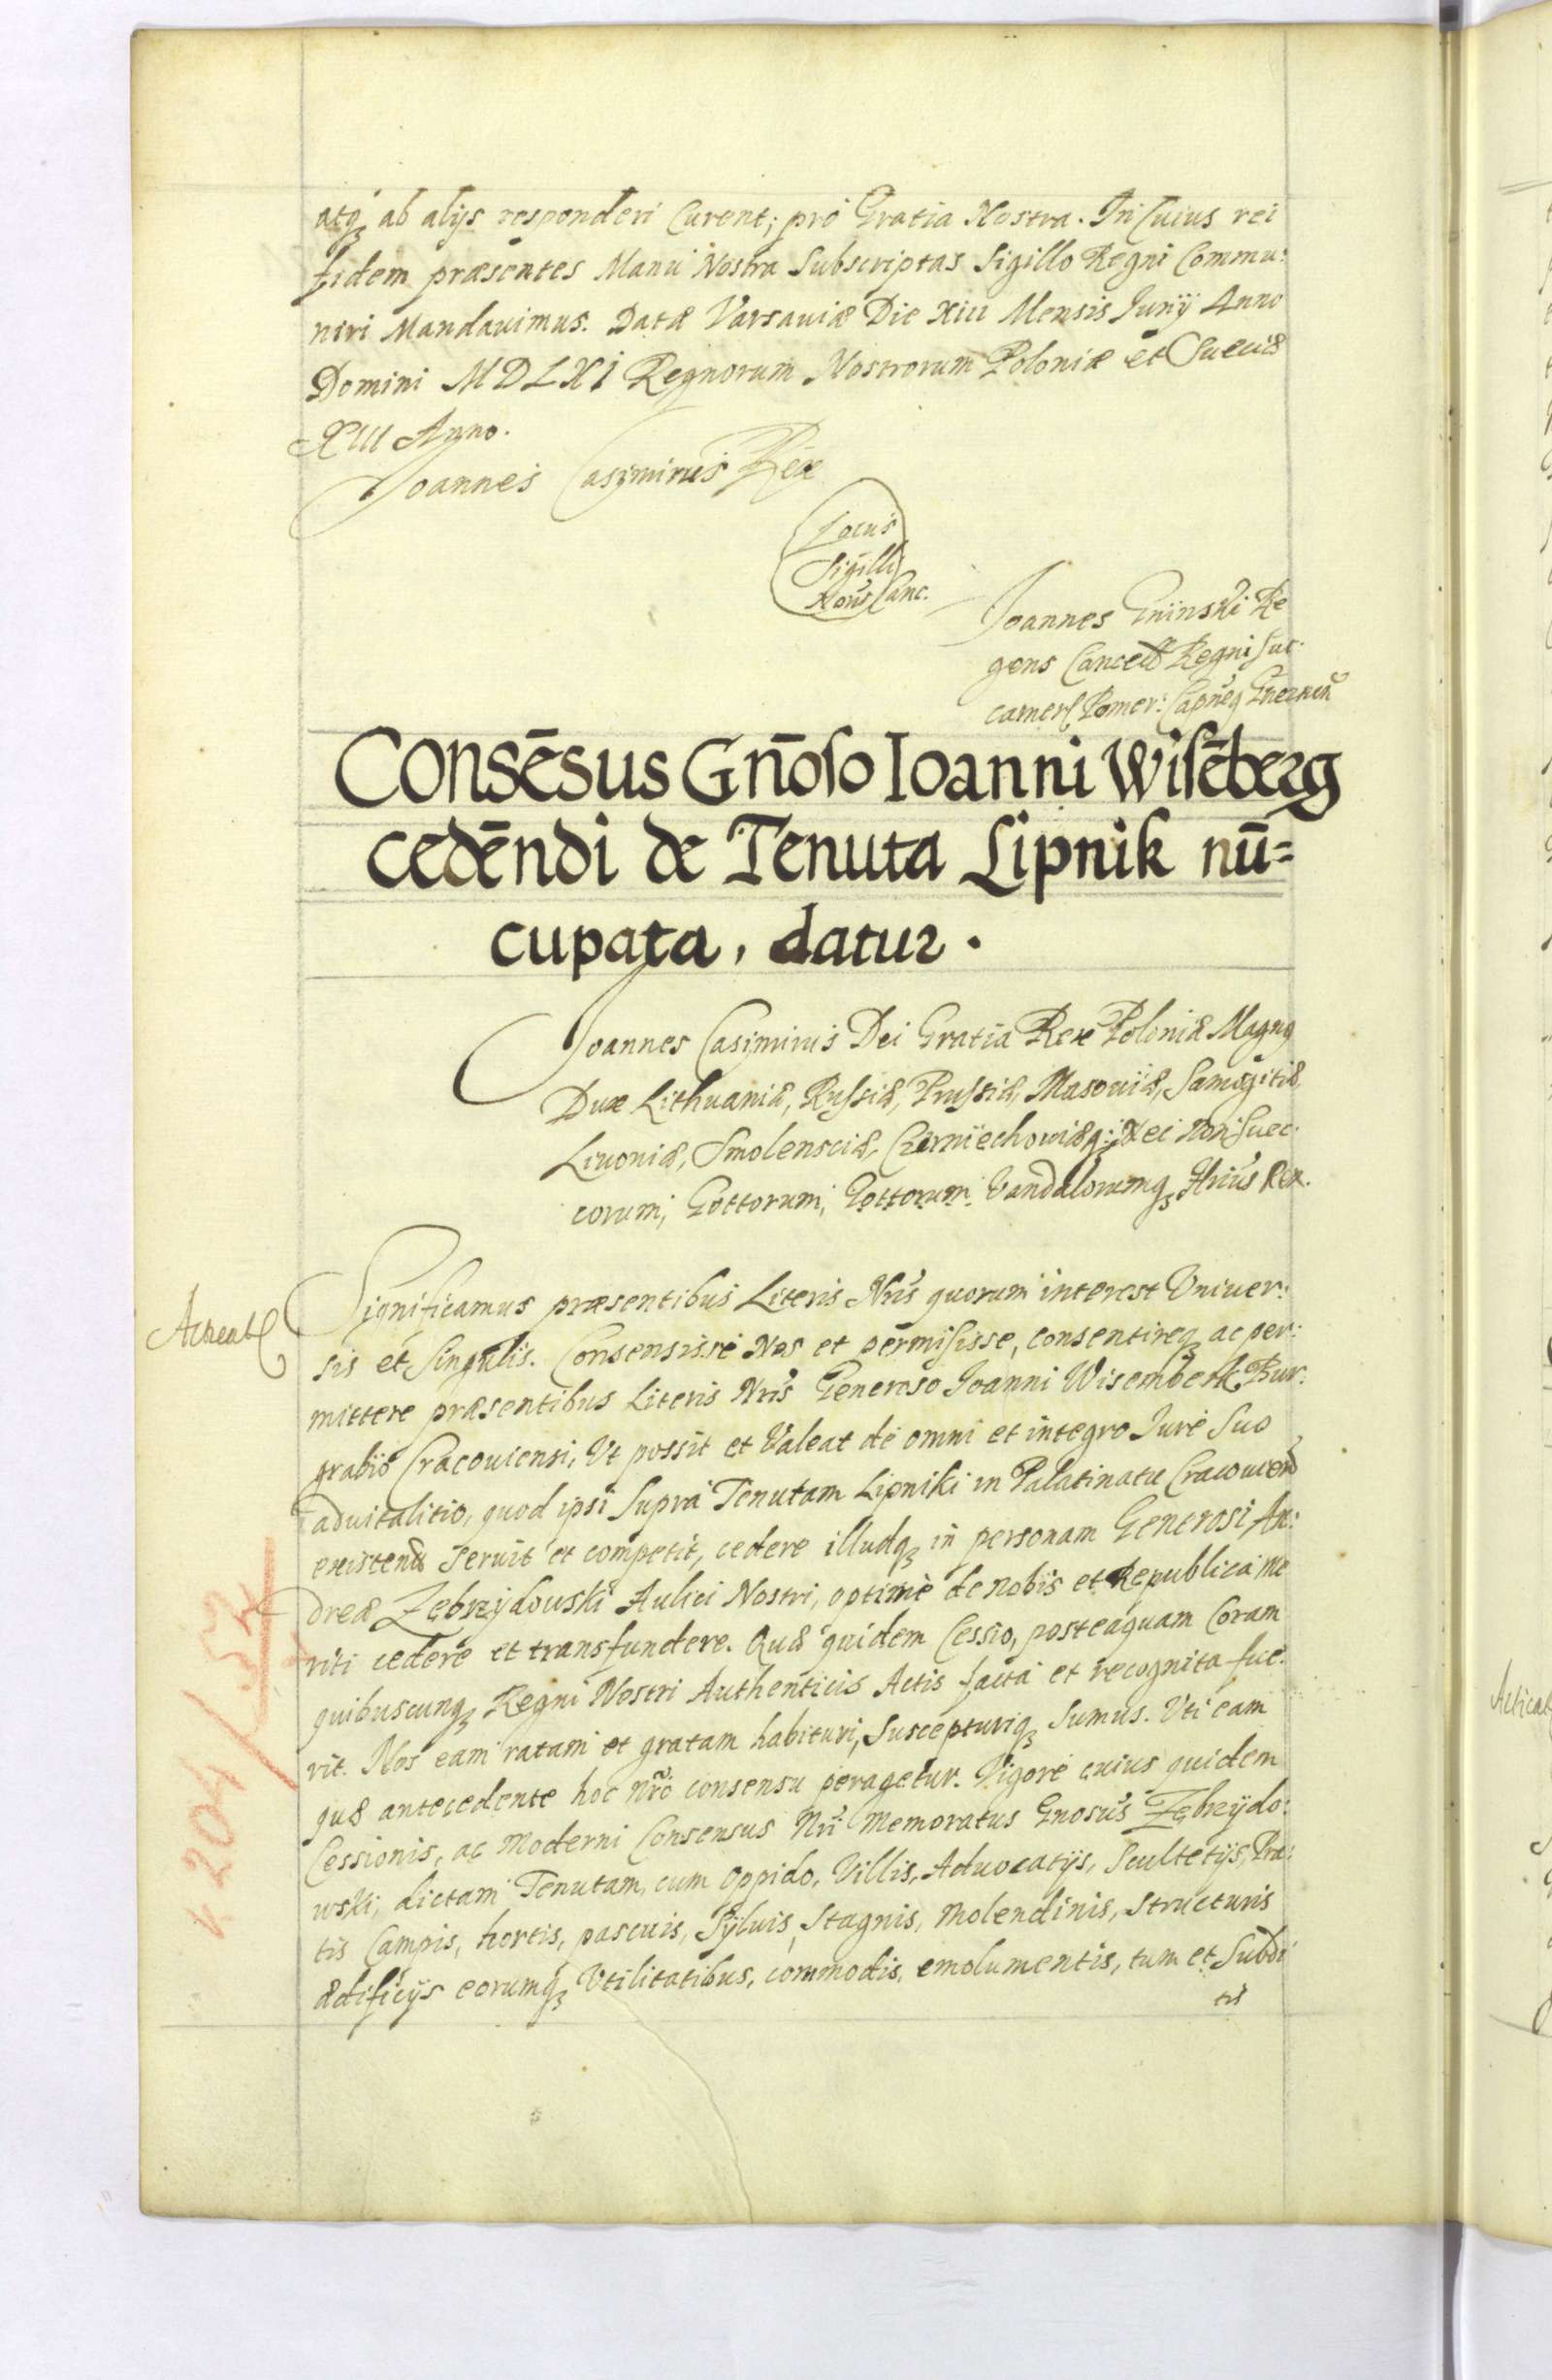 atq₃ ab alijs responderi Curent; pro Gratia Nostra. In Cuius rei
fidem præsentes Manu Nostra Subscriptas Sigillo Regni Commu:
niri Mandauimus. Datæ Varsauiæ Die XIII Mensis Junij Anno
Domini MDLXI Regnorum Nostrorum Poloniæ et Sueciæ
XIII Anno.
Joannes Casimirus Rex
Locus
Sigilli
Canc.
Joannes Gninski Re
gens Cancell Regni Suc:
camer Pomer: Capneq Gneznen
Consēsus Gn̄oso Ioanni Wisēberg
cedēndi de Tenuta Lipnik nū=
cupata, datur.
Joannes Casimirus Dei Gratia Rex Poloniæ Magnq
Dux Lithuaniæ, Russiæ, Prussiæ, Masouiæ, Samogitiæ,
Liuoniæ, Smolensciæ, Czerniechouiæq; Nec non Suec:
corum, Gottorum, Gottorum Vandalorumq₃ Hrius Rex.
Acticat
Significamus præsentibus Literis Nris quorum interest Vniuer:
sis et Singulis. Consensisse Nos et permisisse, consentireq₃ ac per:
mittere præsentibus Literis Nris Generoso Joanni Wisemberk Bur:
grabio Cracouiensi, Vt possit et Valeat de omni et integro Jure Suo
aduitalitio, quod ipsi Supra Tenutam Lipniki in Palatinatu Cracouien
existend seruit et competit, cedere illudq₃ in personam Generosi An:
dreæ Zębrzydowski Aulici Nostri, optime de nobis et Republica me
riti cedere et transfundere. Quæ quidem Cessio, posteaquam Coram
quibuscunq₃ Regni Nostri Authenticis Actis facta et recognita fue:
rit. Nos eam ratam et gratam habituri, Suscepturiq₃ Sumus. Vti eam
quæ antecedente hoc Nro consensu peragetur. Vigore cuius quidem
Cessionis, ac Moderni Consensus Nri Memoratus Gnosus Zębrzydo:
wski, dictam Tenutam, cum Oppido, Villis, Aduocatijs, Scultetijs, Pra:
tis Campis, hortis, pascuis, Syluis, Stagnis, Molendinis, Structuris
ædificijs eorumq₃ Vtilitatibus, commodis, emolumentis, tum et Subdi
tis